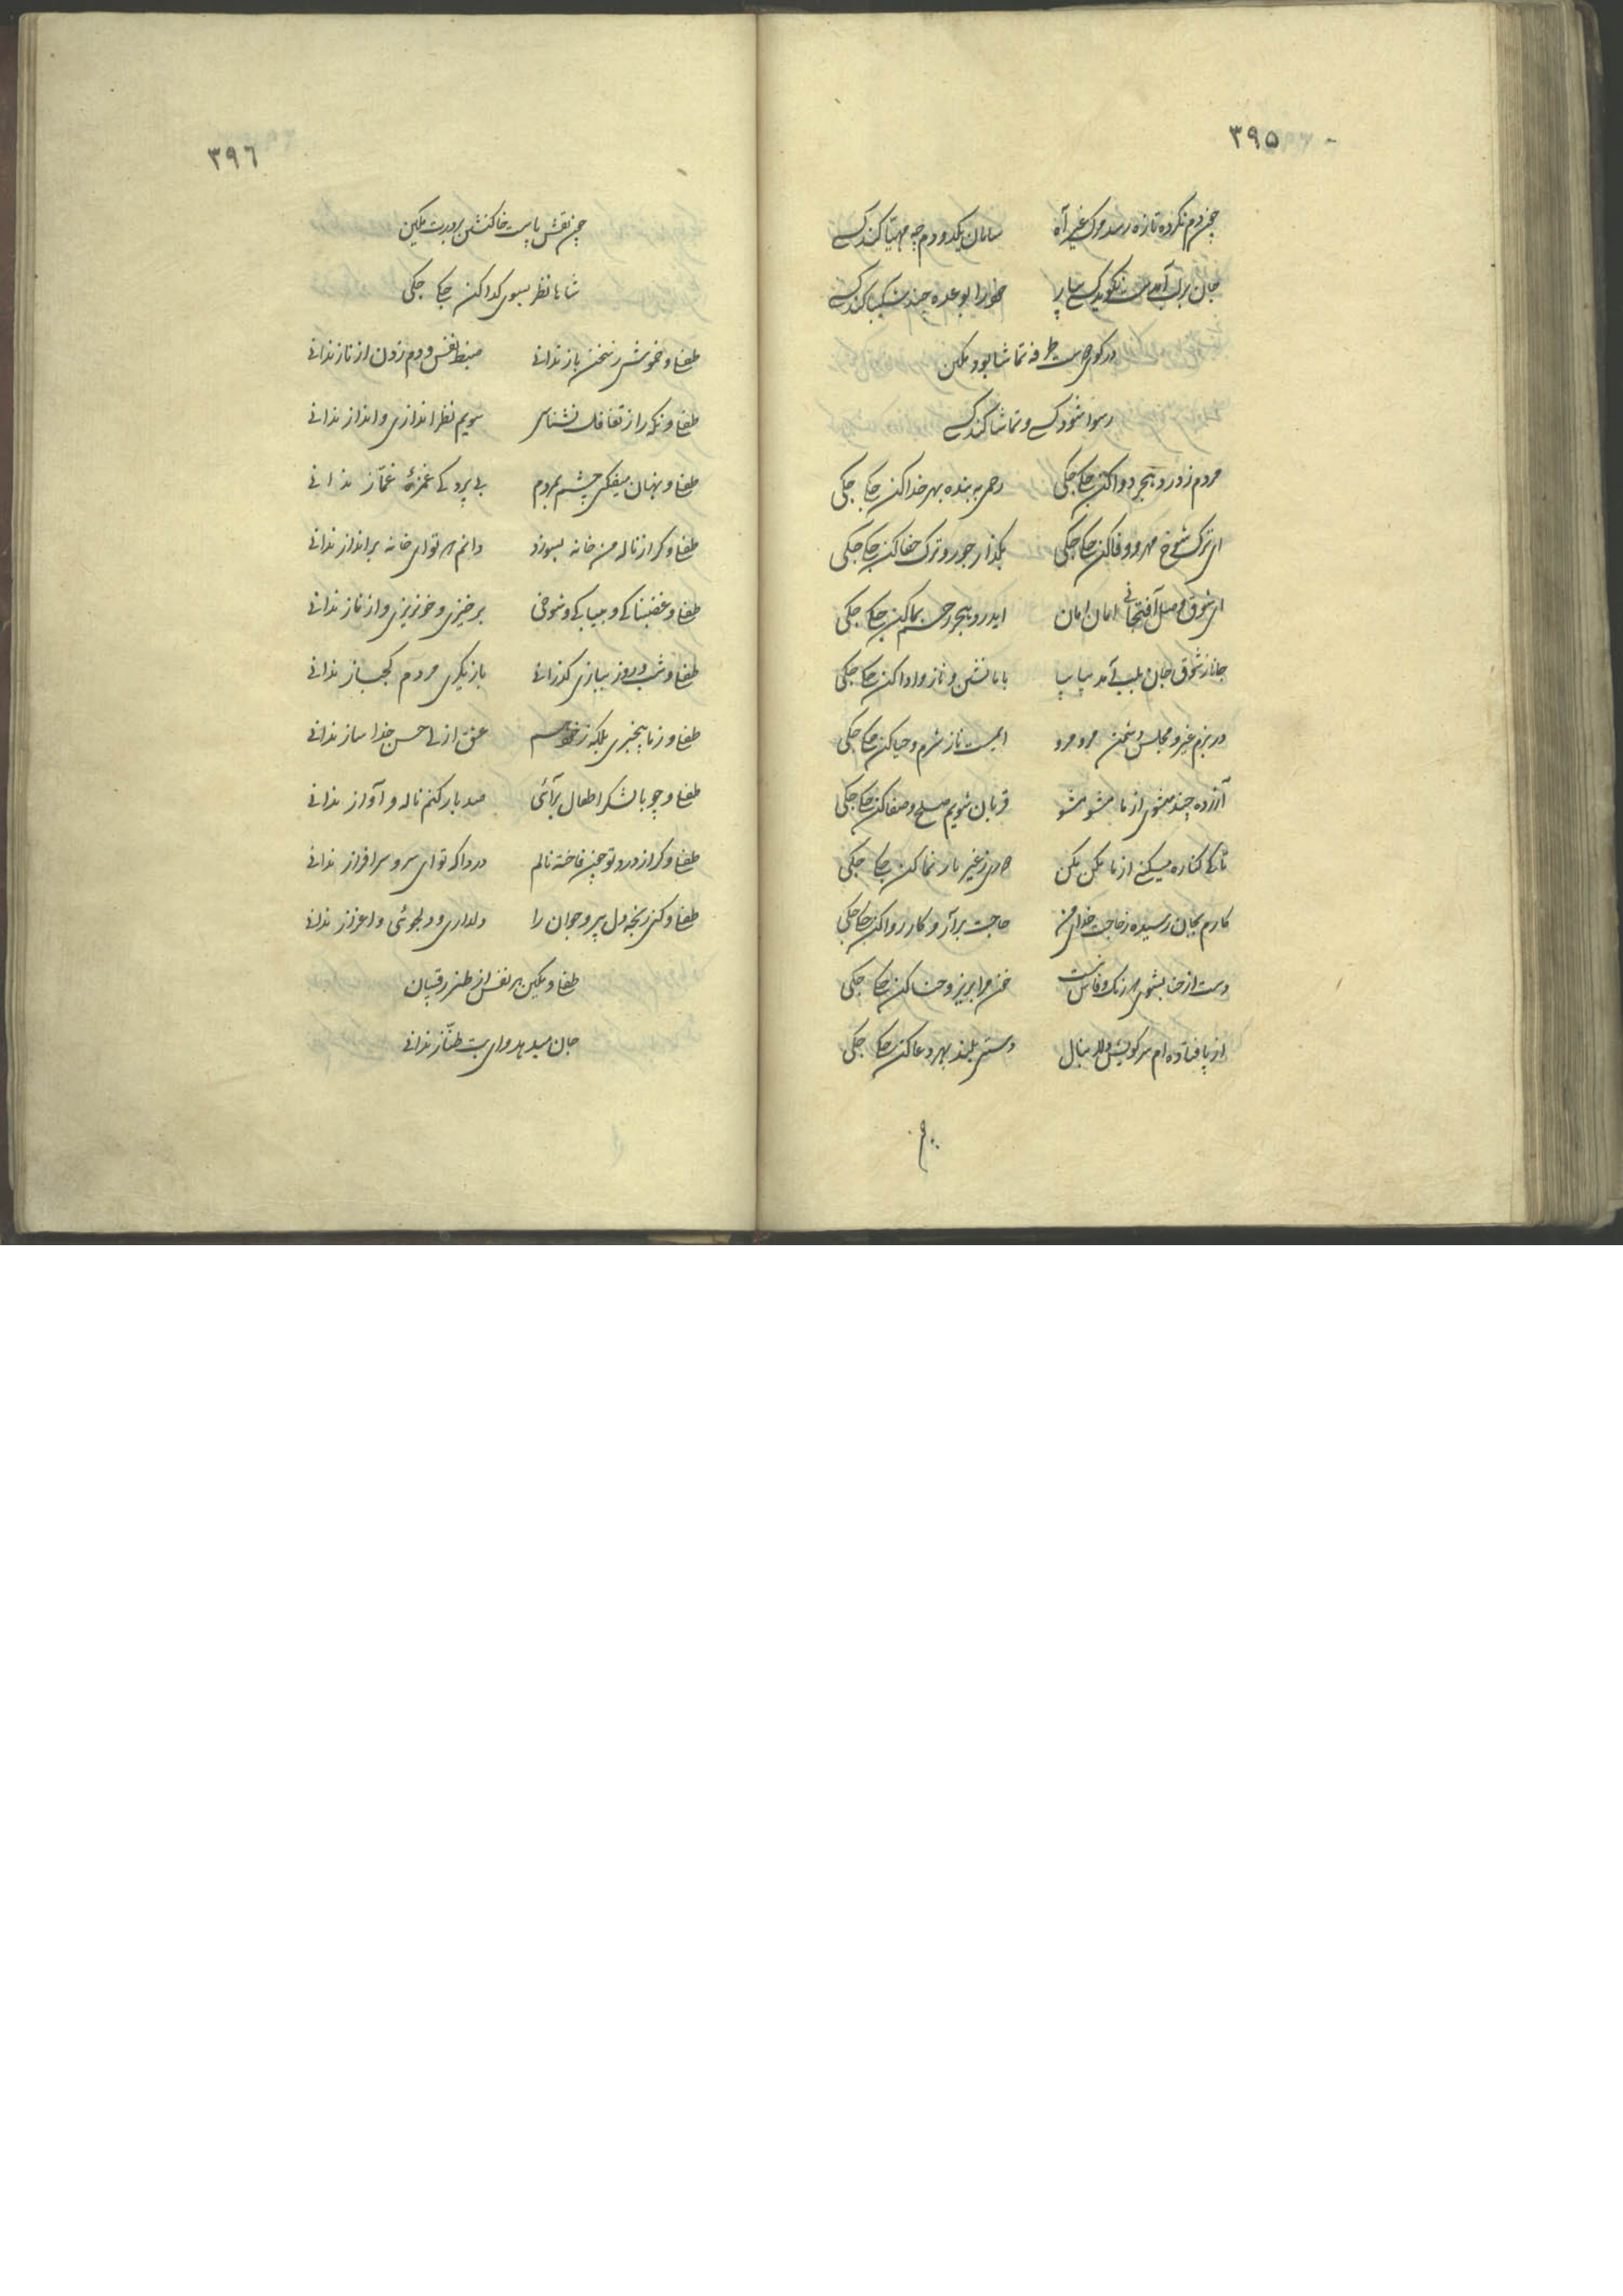 ۳۹۵
چون دم نکرده تازه رسد مرگ غیر آه سامان یکدو دم چه مهیا کند کسی
جان بر لب آمدست نگوید کسی بیا خود را بوعده چند شکیبا کند کسی
در کوی دوست طرفه تماشا بود مکین
رسوا شود کسی و تماشا کند کسی
مردم ز درد هجر دوا کن جکی جکی رحمی به بنده بهر خدا کن جکی جکی
ای ترک شوخ مهر و وفا کن جکی جکی بگذار جور و ترک جفا کن جکی جکی
ای شوق وصل امان امان ایدرد هجر رحم بما کن جکی جکی
جانا ز شوق جان بلب آمد بیا بیا با ما نشین و ناز و ادا کن جکی جکی
در بزم غیر و مجلس دشمن مرو مرو ای مست ناز شرم و حیا کن جکی جکی
آزرده چند میشوی از ما مشو مشو قربان شویم صلح و صفا کن جکی جکی
تا کی کناره میکنی از ما مکن مکن ز غیر بار نما کن جکی جکی
کارم بجان رسیده ز حاجت خدای من حاجت برآر و کار روا کن جکی جکی
دست از حنا بشوی که رنگ وفاش نیست خون مرا بریز و حنا کن جکی جکی
از پا فتاده ام سر کویش دلا منال دستی بلند بهر دعا کن جکی جکی
۳۹۶
چون نقش پاست خاک نشین بر درت مکین
شاها نظر بسوی گدا کن جکی جکی
طفلی و خموشی ز سخن باز ندانی ضبط نفس و دم زدن از ناز ندانی
طفلی و نگه را ز تغافل نشناسی سویم نظر اندازی و انداز ندانی
طفلی و نهان میفکنی چشم بمردم بی پردگی غمزهٔ غماز ندانی
طفلی و گر از ناله من خانه بسوزد دانم که تو ای خانه برانداز ندانی
طفلی و غضبناکی و بیباکی و شوخی برخیزی و خونریزی و از ناز ندانی
طفلی و شب و روز ببازی گذرانی بازیگری مردم کجباز ندانی
طفلی و ز ما بیخبری بلکه ز خود هم عشق ازلی حسن خدا ساز ندانی
طفلی و چو با لشکر اطفال برآئی صد بار کنم ناله و آواز ندانی
طفلی و گر از درد تو چون فاخته نالم دردا که تو ای سرو سرافراز ندانی
طفلی و کنی رنجه دل پیر و جوان را دلداری و دلجوئی و اعزاز ندانی
طفلی و مکین هر نفس از طنز رقیبان
جان میدهد و ای بت طناز ندانی